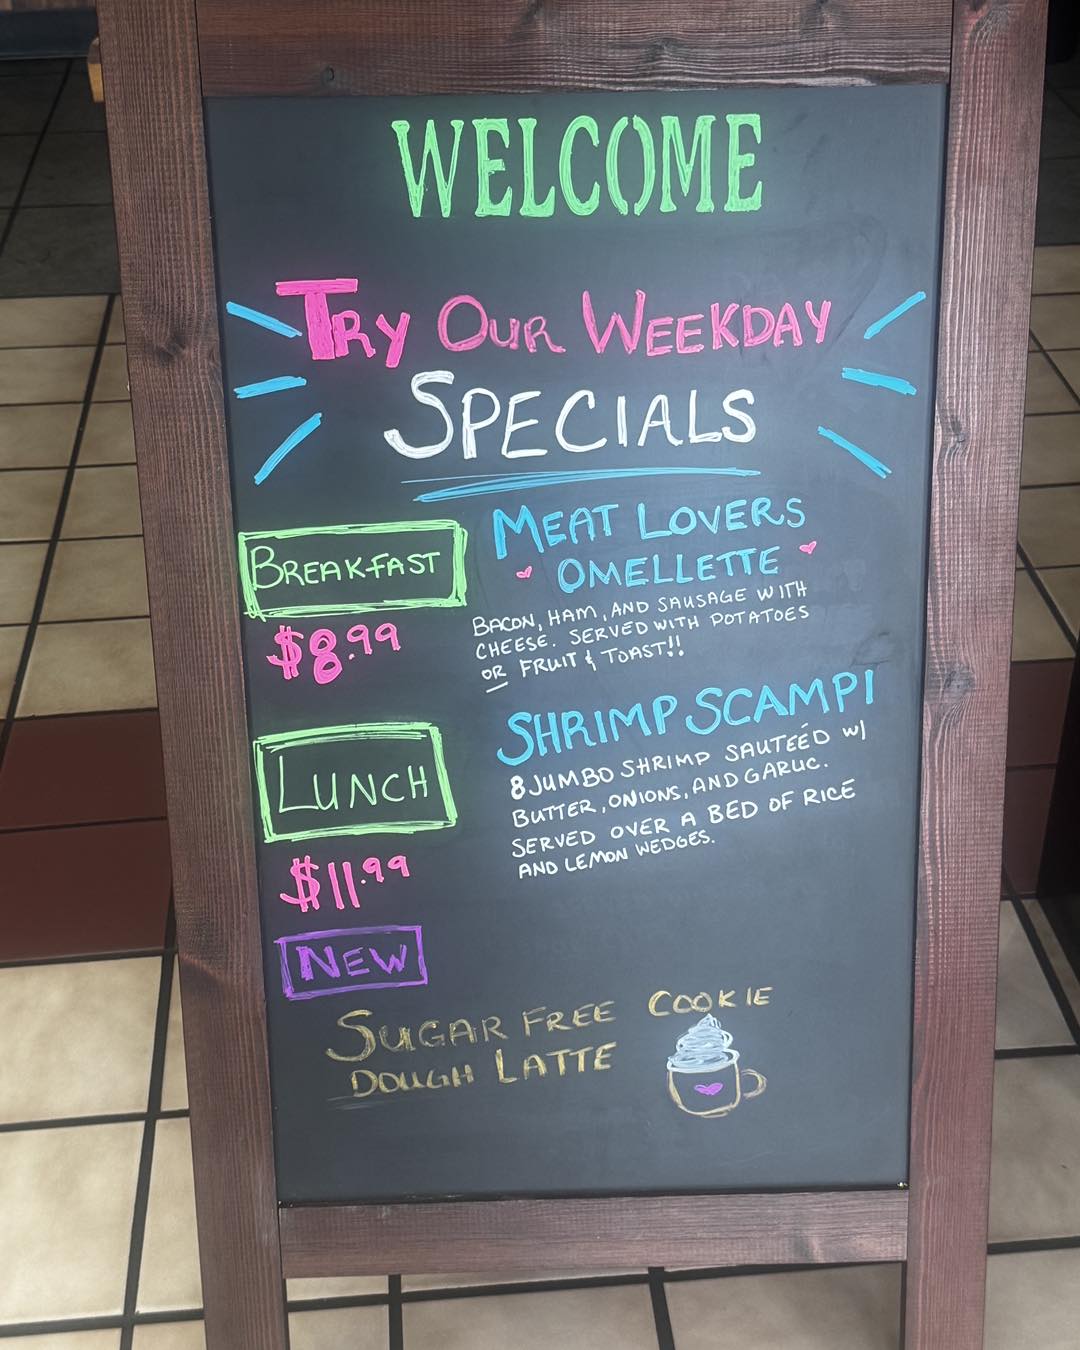 WELCOME
TRY OUR WEEKDAY
SPECIALS
BREAKFAST
$8.99
MEAT LOVERS
OMELLETTE
BACON, HAM, AND SAUSAGE WITH
CHEESE. SERVED WITH POTATOES
OR FRUIT & TOAST!!
LUNCH
$11.99
SHRIMP SCAMPI
8 JUMBO SHRIMP SAUTEÉD W/
BUTTER, ONIONS, AND GARLIC.
SERVED OVER A BED OF RICE
AND LEMON WEDGES.
NEW
SUGAR FREE COOKIE
DOUGH LATTE